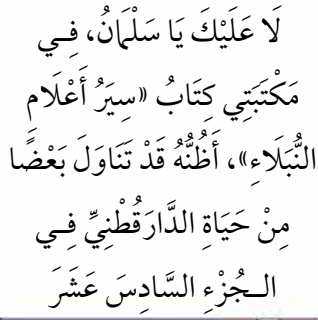 لَا عَلَيْكَ يَا سَلْمَانُ، فِـي
مَكْتَبَتِي كِتَابُ «سِيَرُ أَعْلَامِ
النُّبَلَاءِ»، أَظُنُّهُ قَدْ تَنَاوَلَ بَعْضًا
مِنْ حَيَاةِ الدَّارَقُطْنِيِّ فِـي
الـجُزْءِ السَّادِسَ عَشَرَ